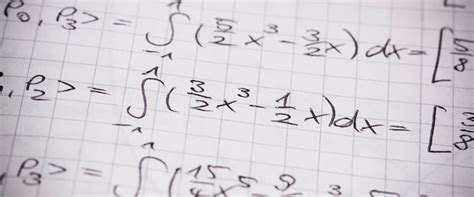 P₀, P₃> = ∫₋₁¹ (5/2 x³ - 3/2 x) dx = [5/8
, P₂> = ∫₋₁¹ (3/2 x³ - 1/2 x) dx = [3/8
, P₃> = ∫¹ (15/4 x⁵ - 9 3